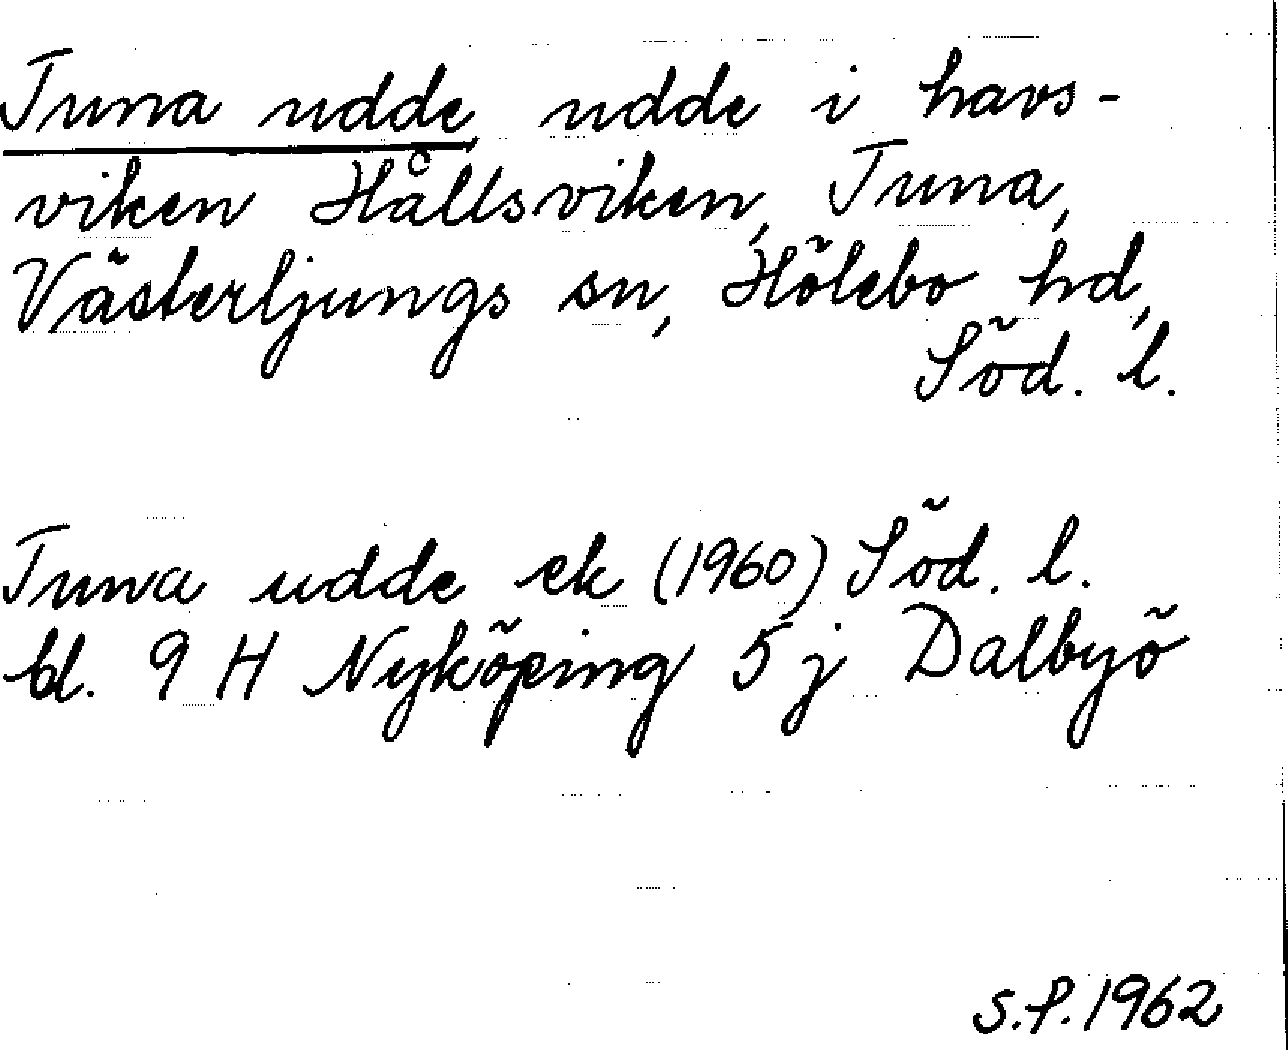 Tuna udde, udde i havs-
viken Hållsviken, Tuna,
Västerljungs sn, Hölebo hd,
Söd. l.
Tuna udde ek (1960) Söd. l.
bl. 9 H Nyköping 5 j Dalbyö
S.P. 1962